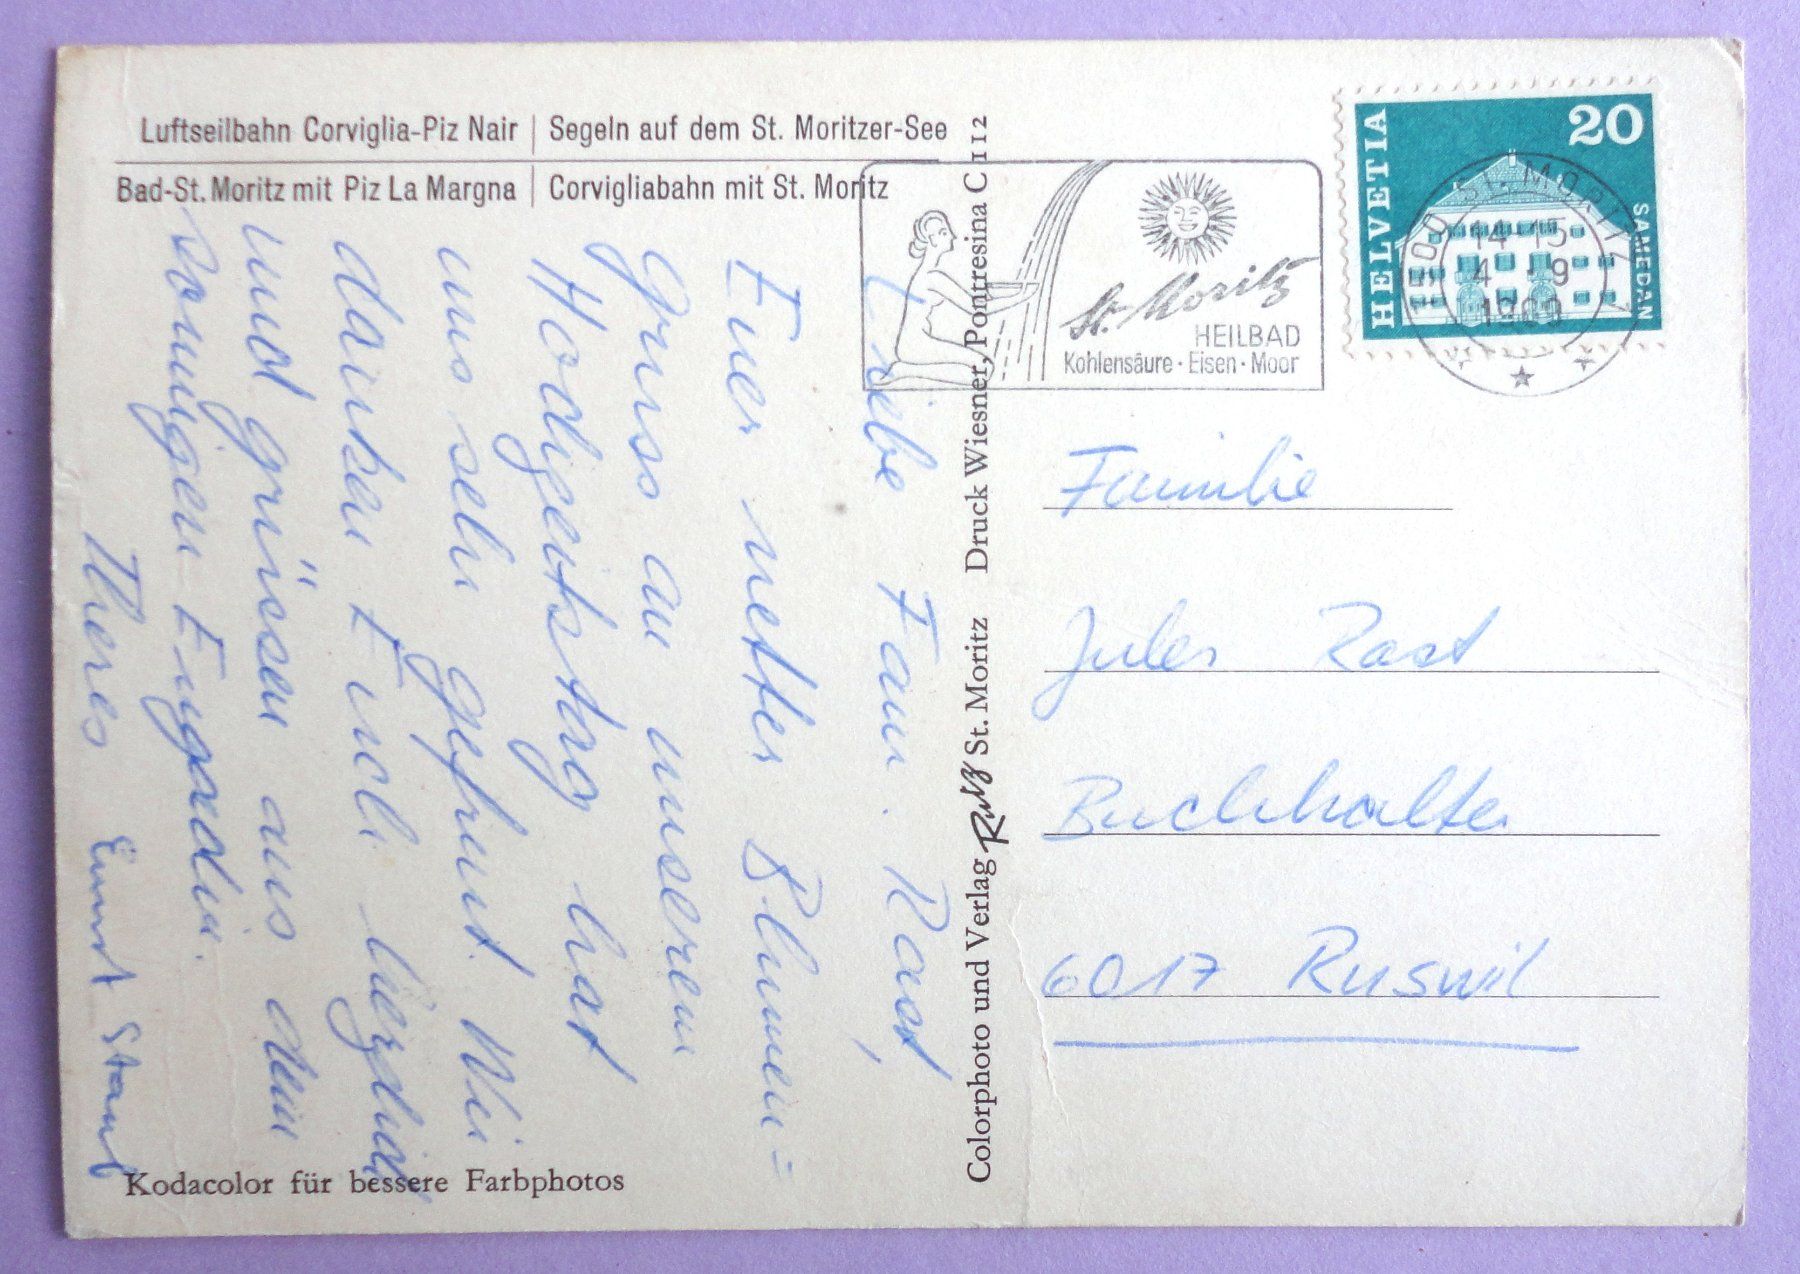 Luftseilbahn Corviglia-Piz Nair | Segeln auf dem St. Moritzer-See
Bad-St. Moritz mit Piz La Margna | Corvigliabahn mit St. Moritz
Liebe Fam. Rast,
Euer netter Blumen=
gruss an unserem
Hochzeitstag hat
uns sehr gefreut. Wir
danken Euch herzlich
und grüssen aus dem
sonnigen Engadin.
Theres Ernst Staub
Kodacolor für bessere Farbphotos
Colorphoto und Verlag Rutz St. Moritz Druck Wiesner, Pontresina C 112
St. Moritz
HEILBAD
Kohlensäure · Eisen · Moor
HELVETIA
20
SAMEDAN
7500 ST. MORITZ 1
14-15
4.-9
1969
Familie
Jules Rast
Buchhalter
6017 Ruswil